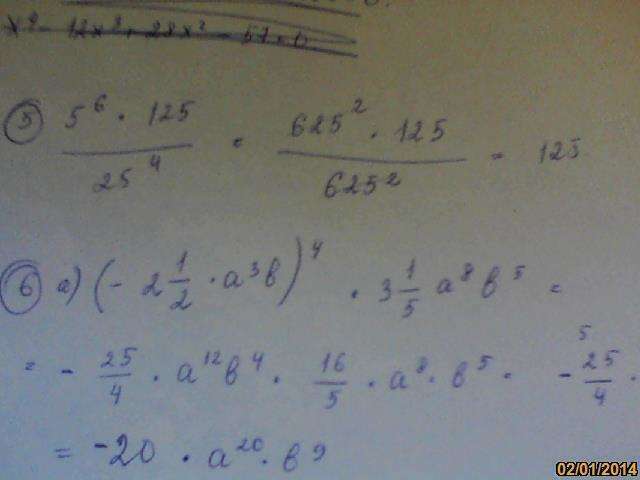 ⑤ 5⁶ · 125 / 25⁴ = 625² · 125 / 625² = 125
⑥ а) (- 2 1/2 · а³в)⁴ · 3 1/5 а⁸ в⁵ =
= - 25/4 · а¹²в⁴ · 16/5 · а⁸ · в⁵ = - 25/4 ·
5
= -20 · а²⁰ · в⁹
02/01/2014